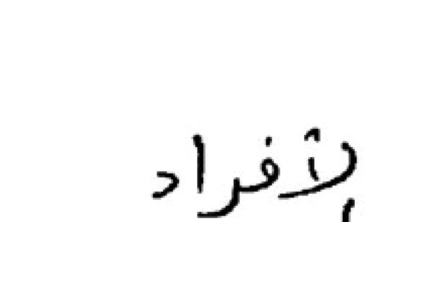 لأفراد